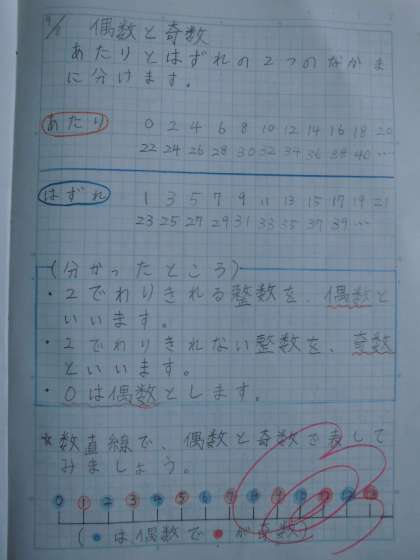 9/1 偶数と奇数
あたりとはずれの2つのなかま
に分けます。
あたり 0 2 4 6 8 10 12 14 16 18 20
22 24 26 28 30 32 34 36 38 40 …
はずれ 1 3 5 7 9 11 13 15 17 19 21
23 25 27 29 31 33 35 37 39 …
(分かったところ)
・2でわりきれる整数を、偶数と
いいます。
・2でわりきれない整数を、奇数
といいます。
・0は偶数とします。
☆数直線で、偶数と奇数を表して
みましょう。
0 1 2 3 4 5 6 7 8 9 10
(●は偶数で●が奇数)